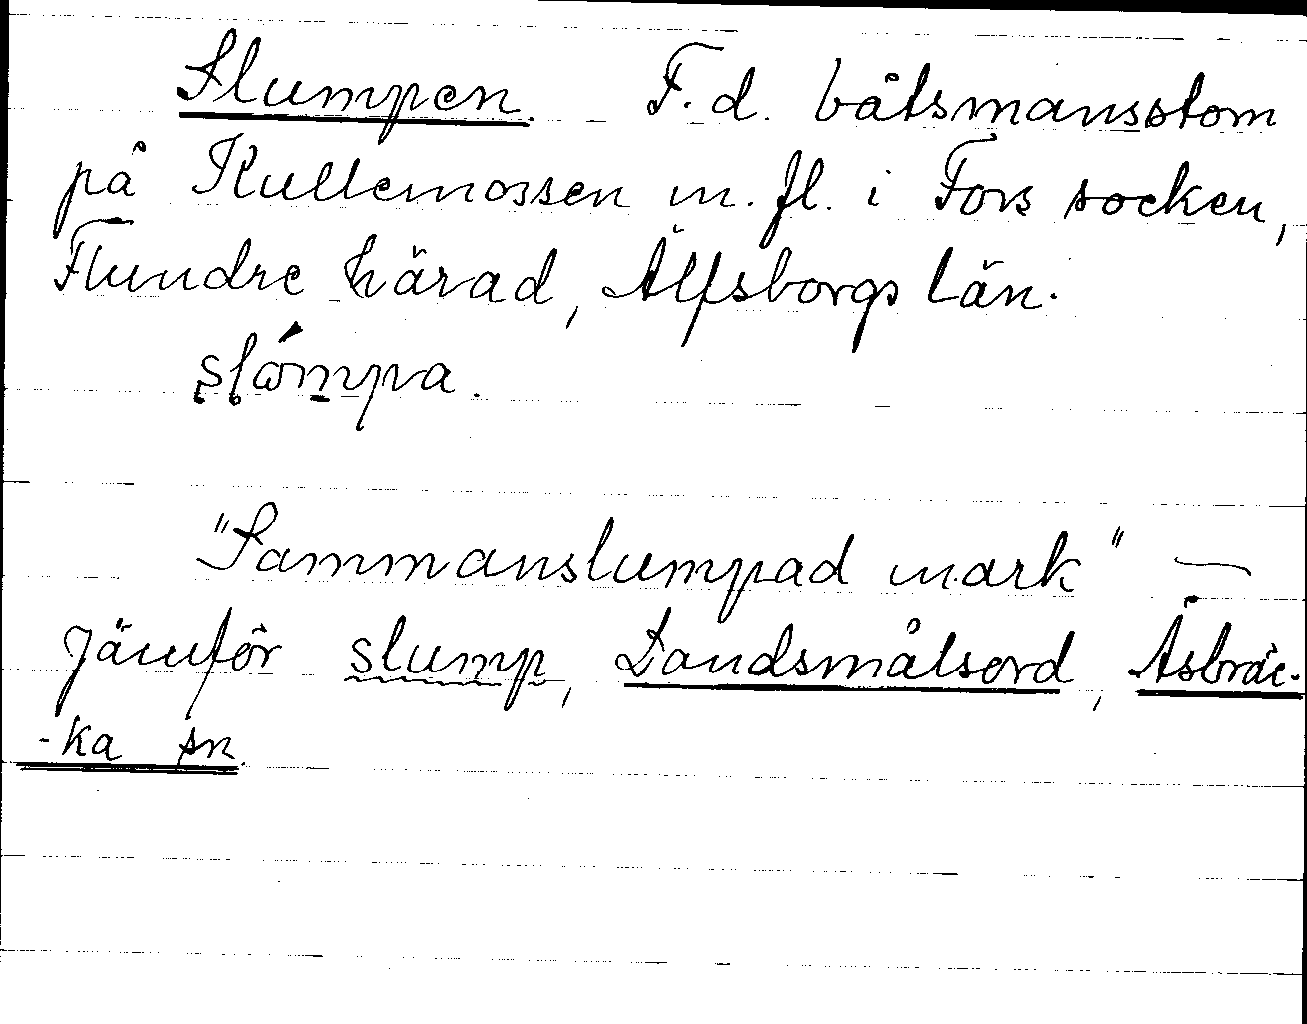 Slumpen. F.d. båtsmansstom
på Kullemossen m.fl. i Fors socken,
Flundre härad, Älfsborgs län.
slómpa.
"Sammanslumpad mark" —
jämför slump, Landsmålsord, Åsbräc-
-ka sn.